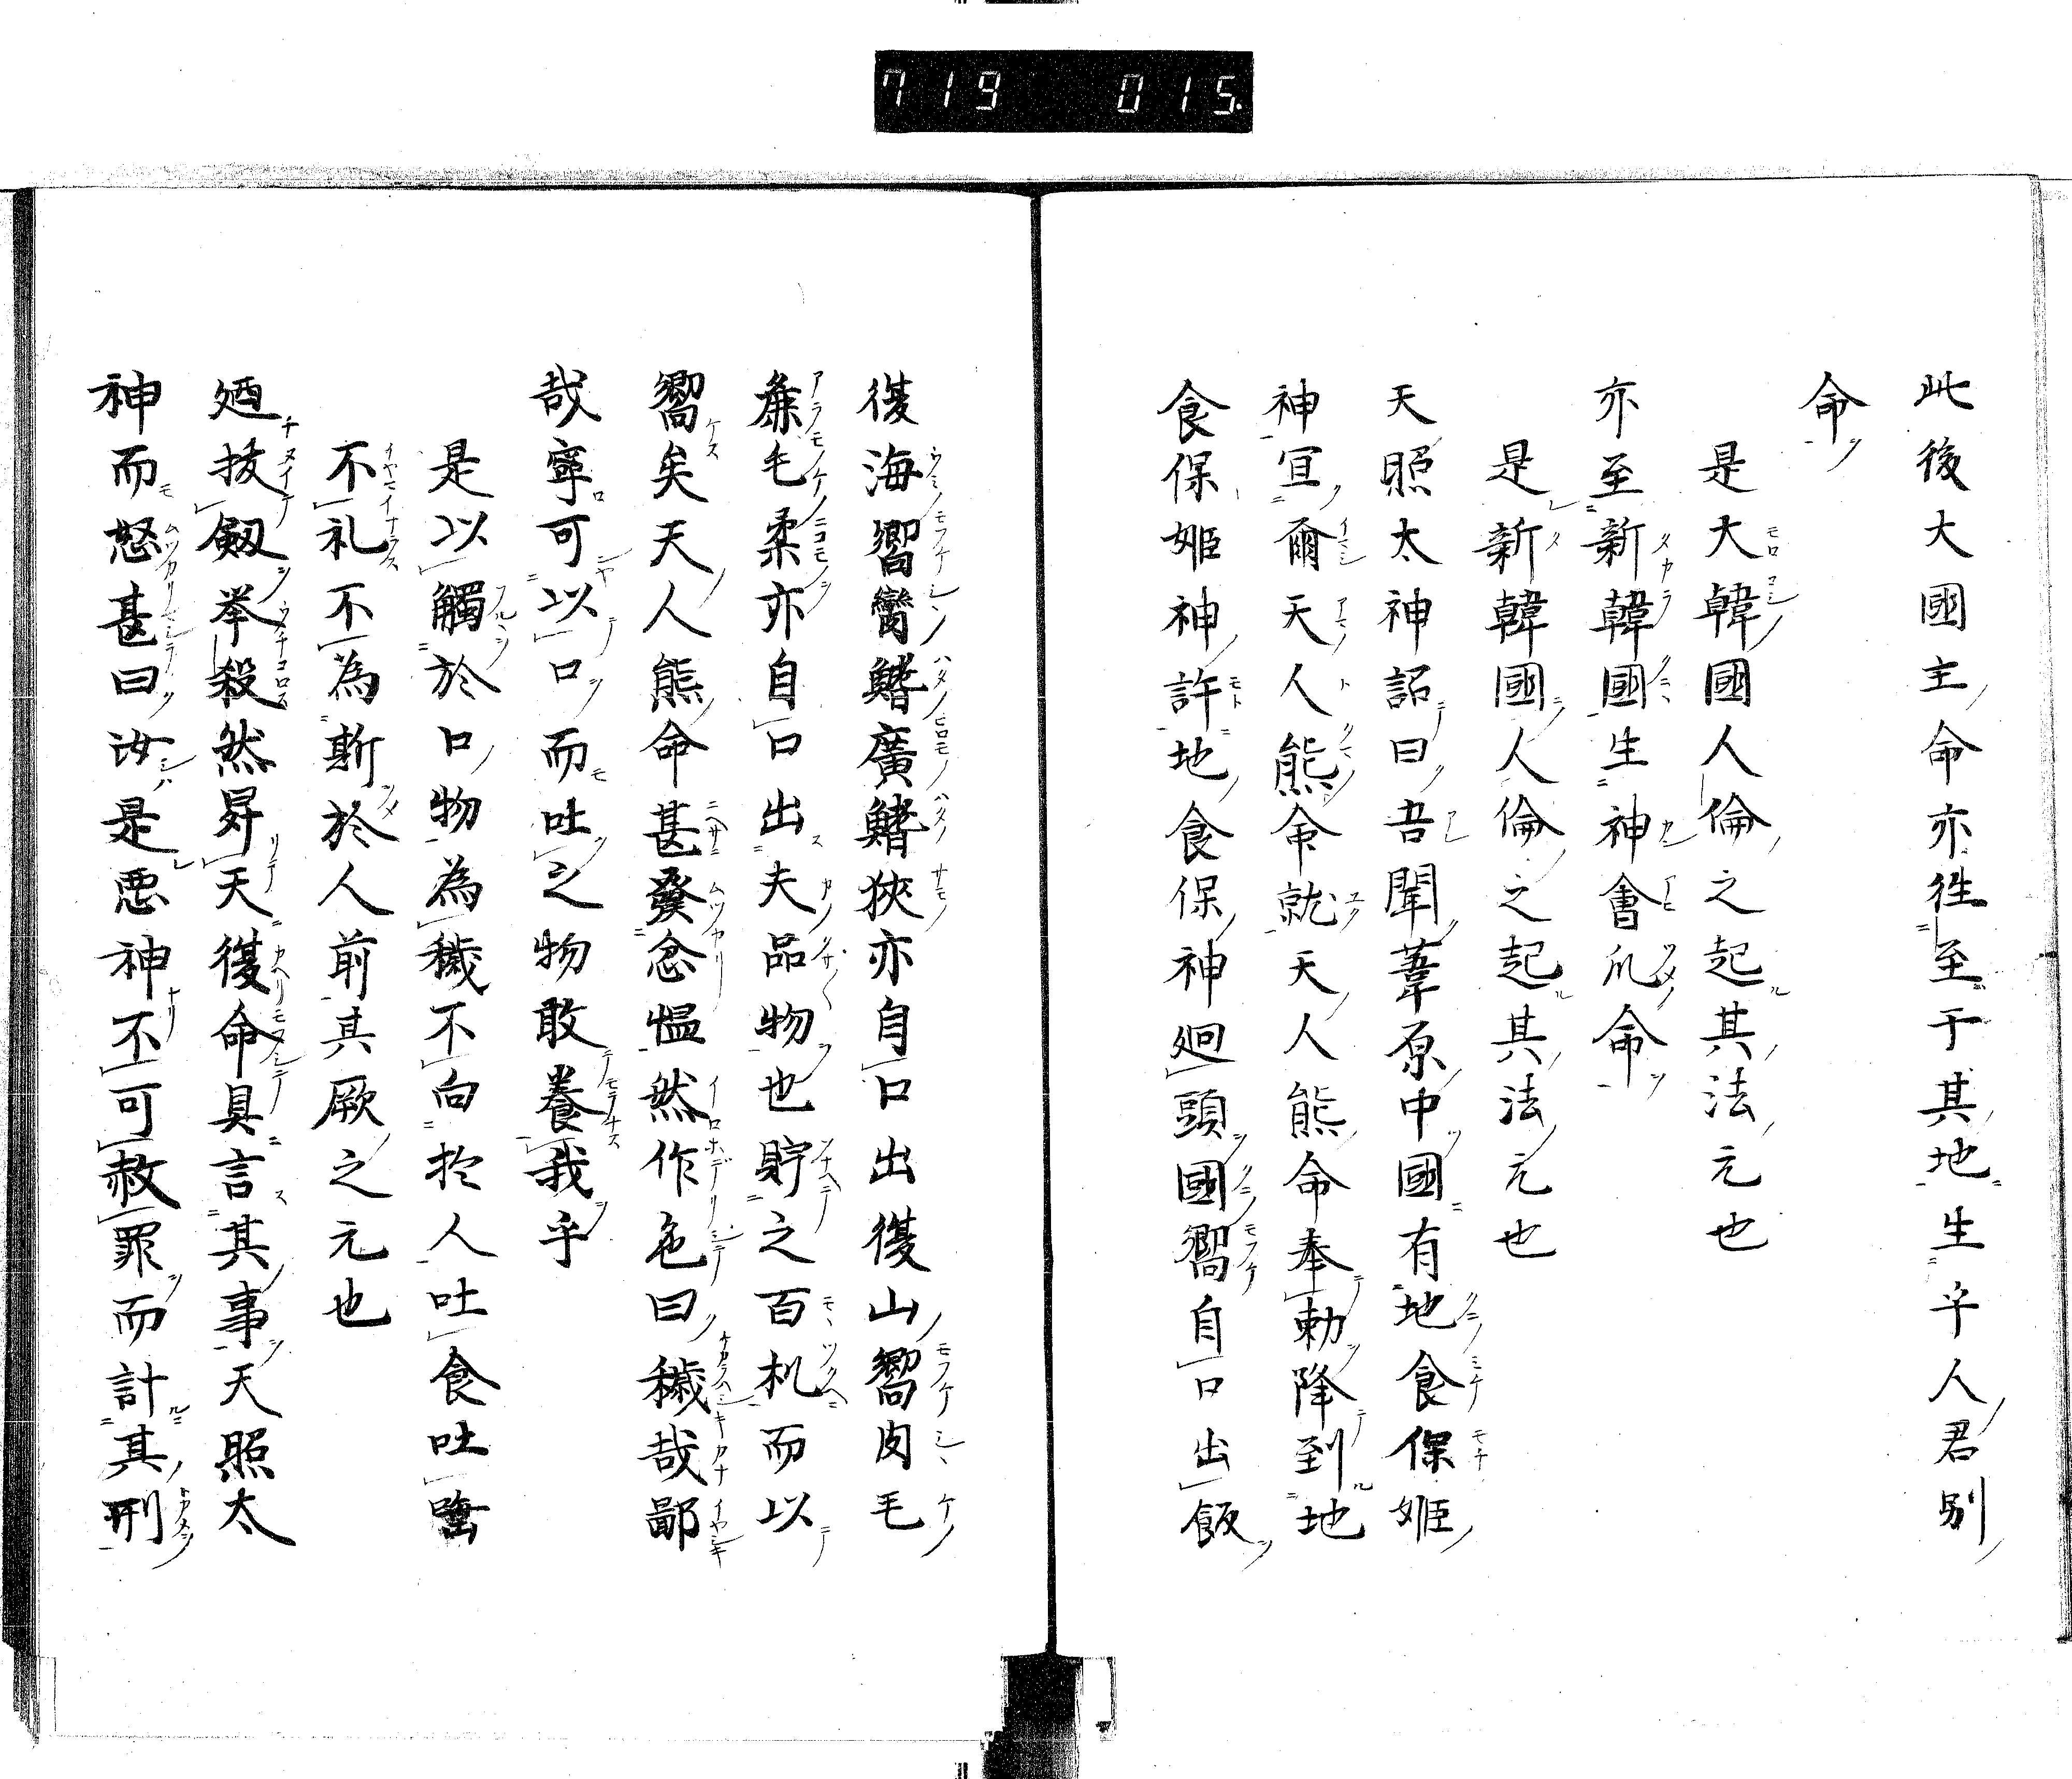 719 015
此後大國主命亦徃至于其地生乎人君別
命
是大韓國人倫之起其法元也
亦至新韓國生神會爪命
是新韓國人倫之起其法元也
天照太神詔曰吾聞葦原中國有地食保姬
神宣爾天人熊命就天人熊命奉勅降到地
食保姬神許地食保神廻頭國嚮自口出飯
復海嚮鰭廣鰭狹亦自口出復山嚮肉毛
麁毛柔亦自口出夫品物也貯之百机而以
嚮矣天人熊命甚發忿慍然作色曰穢哉鄙
哉寧可以口而吐之物敢養我乎
是以觸於口物為穢不向於人吐食吐
不礼不為斯於人前其厥之元也
廼拔劔举殺然昇天復命具言其事天照太
神而怒甚曰汝是悪神不可赦罪而計其刑